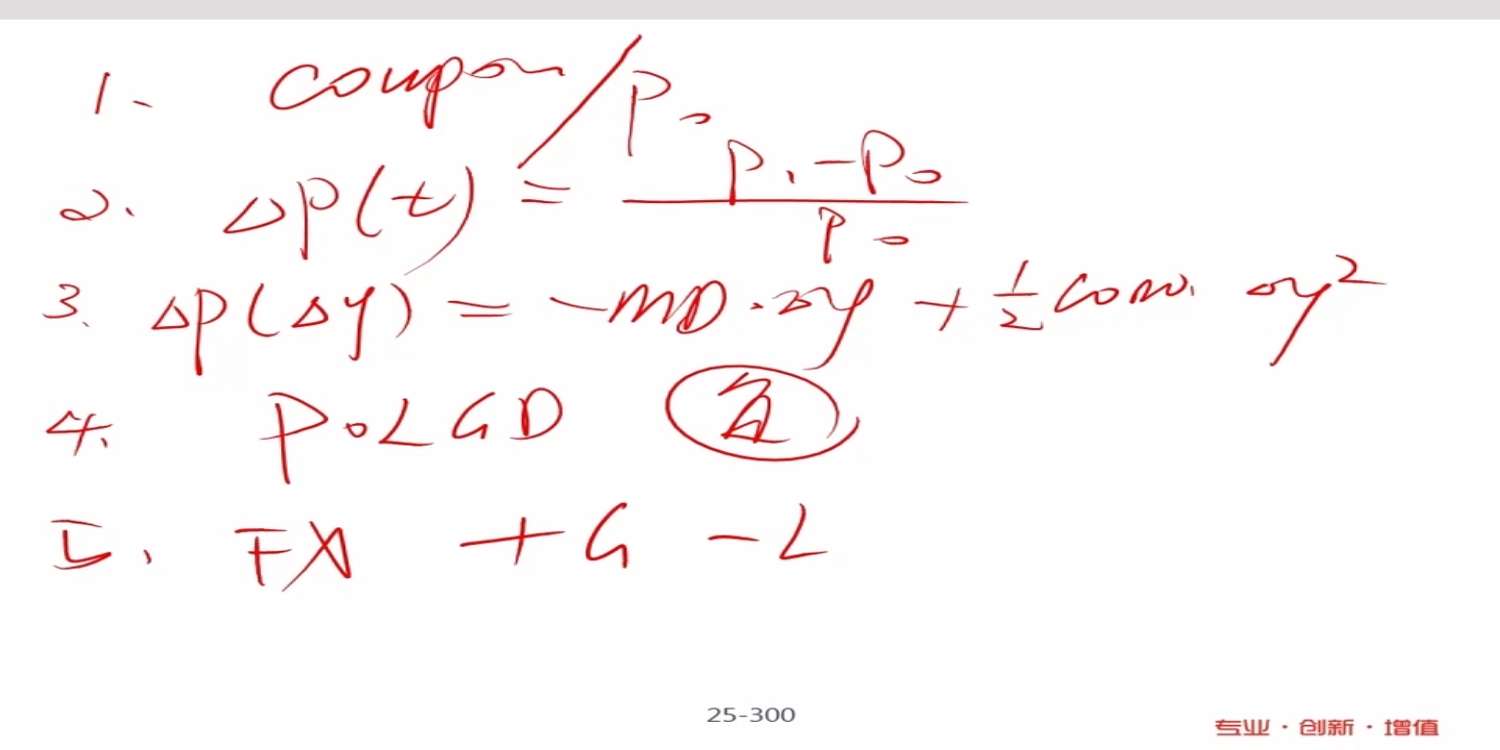 1. coupon/P₀
2. ΔP(t) = (P₁-P₀)/P₀
3. ΔP(Δy) = -MD·Δy + ½ conv. Δy²
4. PoLGD 负
5. FX +G -L
25-300
专业·创新·增值